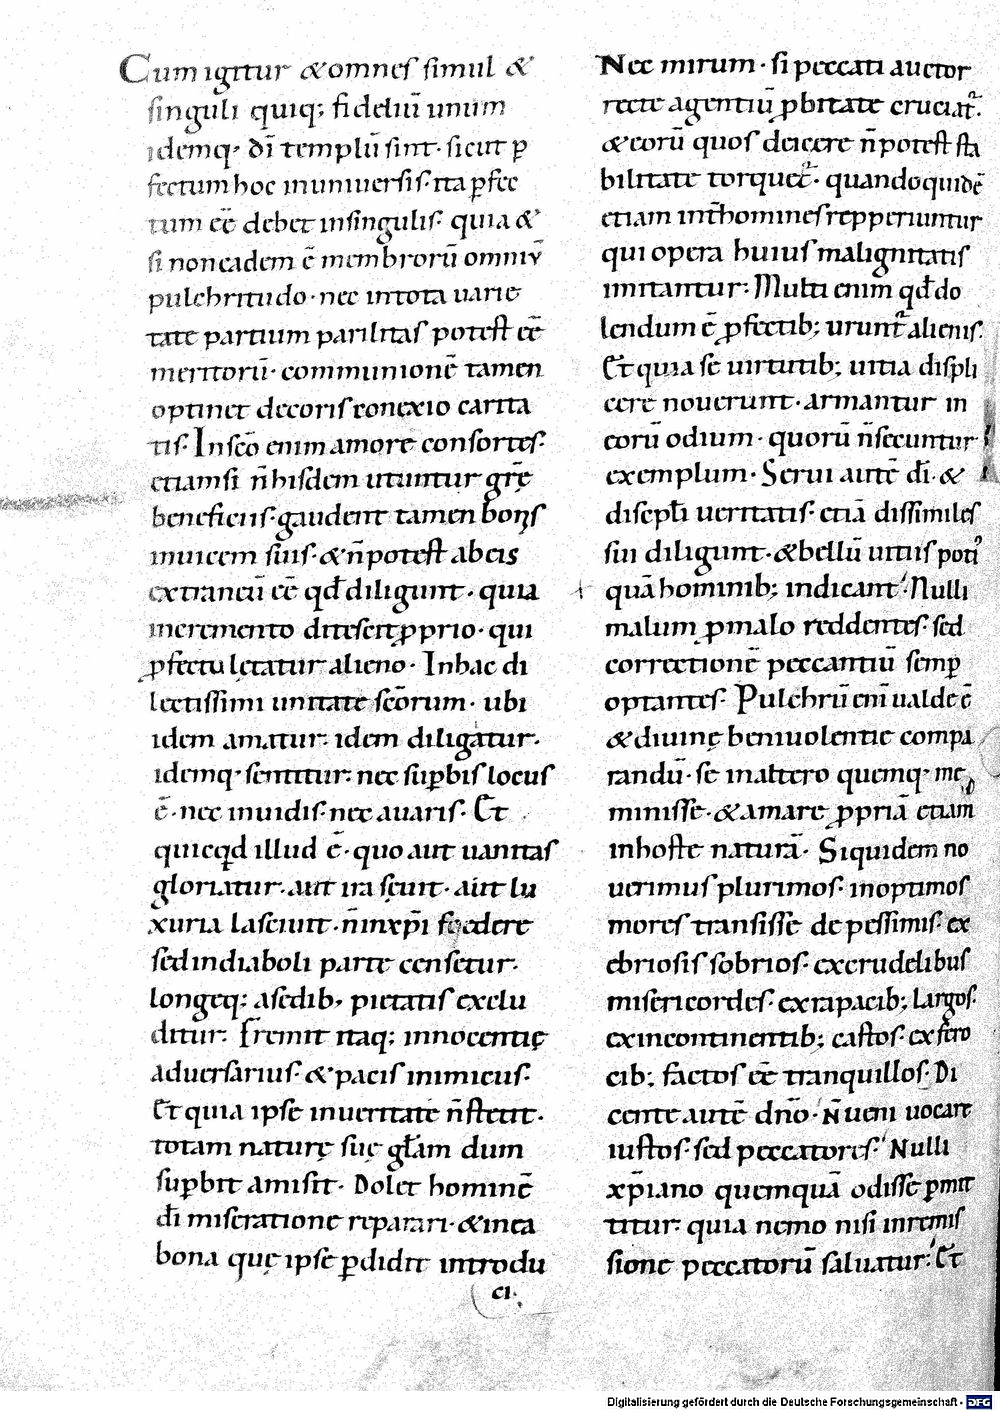 Cum igitur & omnes simul &
singuli quiq; fideliū unum
idemq; dī templū sint· sicut ꝑ
fectum hoc inuniuersis· ita ꝑfec
tum eē debet insingulis· quia &
si non eadem ē membrorū omniū
pulchritudo· nec intota uarie
tate partium parilitas potest eē
meritorū· communionē tamen
optinet decoris conexio carita
tis· In scō enim amore consortes·
etiamsi n̄ hisdem utuntur grę̄
beneficiis· gaudent tamen bonis
inuicem suis· & n̄ potest ab eis
extraneū eē qđ diligunt· quia
incremento ditescit ꝓprio· qui
ꝓfectu lętatur alieno· In hac di
lectissimi unitate scōrum· ubi
idem amatur· idem diligatur·
idemq; sentitur· nec suꝑbis locus
ē· nec inuidis· nec auaris· Et
quicqđ illud ē· quo aut uanitas
gloriatur· aut ira sęuit· aut lu
xuria lasciuit· n̄ in xp̄i foedere
sed indiaboli parte censetur·
longeq; asedib; pietatis exclu
ditur· Fremit itaq; innocentię
aduersarius· & pacis inimicus·
Et quia ipse inueritate n̄ stetit·
totam naturę suę głam dum
suꝑbit amisit· Dolet hominē
dī miseratione reparari· & in ea
bona quę ipse ꝑdidit introdu
ci·
Nec mirum· si peccati auctor
recte agentiū ꝓbitate cruciat᷑·
& eorū quos deicere n̄ potest sta
bilitate torquet᷑· quandoquidē
etiam int̄ homines repperiuntur
qui opera huius malignitatis
imitantur· Multi enim qđ do
lendum ē ꝓfectib; urunt᷑ alienis·
Et quia se uirtutib; uitia displi
cere nouerunt· armantur in
eorū odium· quorū n̄ secuntur
exemplum· Serui autē dī· &
discipłi ueritatis· etiā dissimiles
sui diligunt· & bellū uitiis poti᷒
quā hominib; indicant· Nulli
malum ꝓ malo reddentes· sed
correctionē peccantiū semꝑ
optantes· Pulchrū enī ualde ē
& diuinę beniuolentie compa
randū· se inaltero quemq; me
minisse· & amare ꝓpriā etiam
inhoste naturā· Siquidem no
uerimus plurimos· inoptimos
mores transisse de pessimis· ex
ebriosis sobrios· excrudelibus
misericordes· exrapacib; largos·
exincontinentib; castos· ex fero
cib; factos eē tranquillos· Di
cente autē dn̄o· N̄ ueni uocare
iustos· sed peccatores· Nulli
xp̄iano quemquā odisse ꝑmit
titur· quia nemo nisi inremis
sione peccatorū saluatur· Et
Digitalisierung gefördert durch die Deutsche Forschungsgemeinschaft - DFG